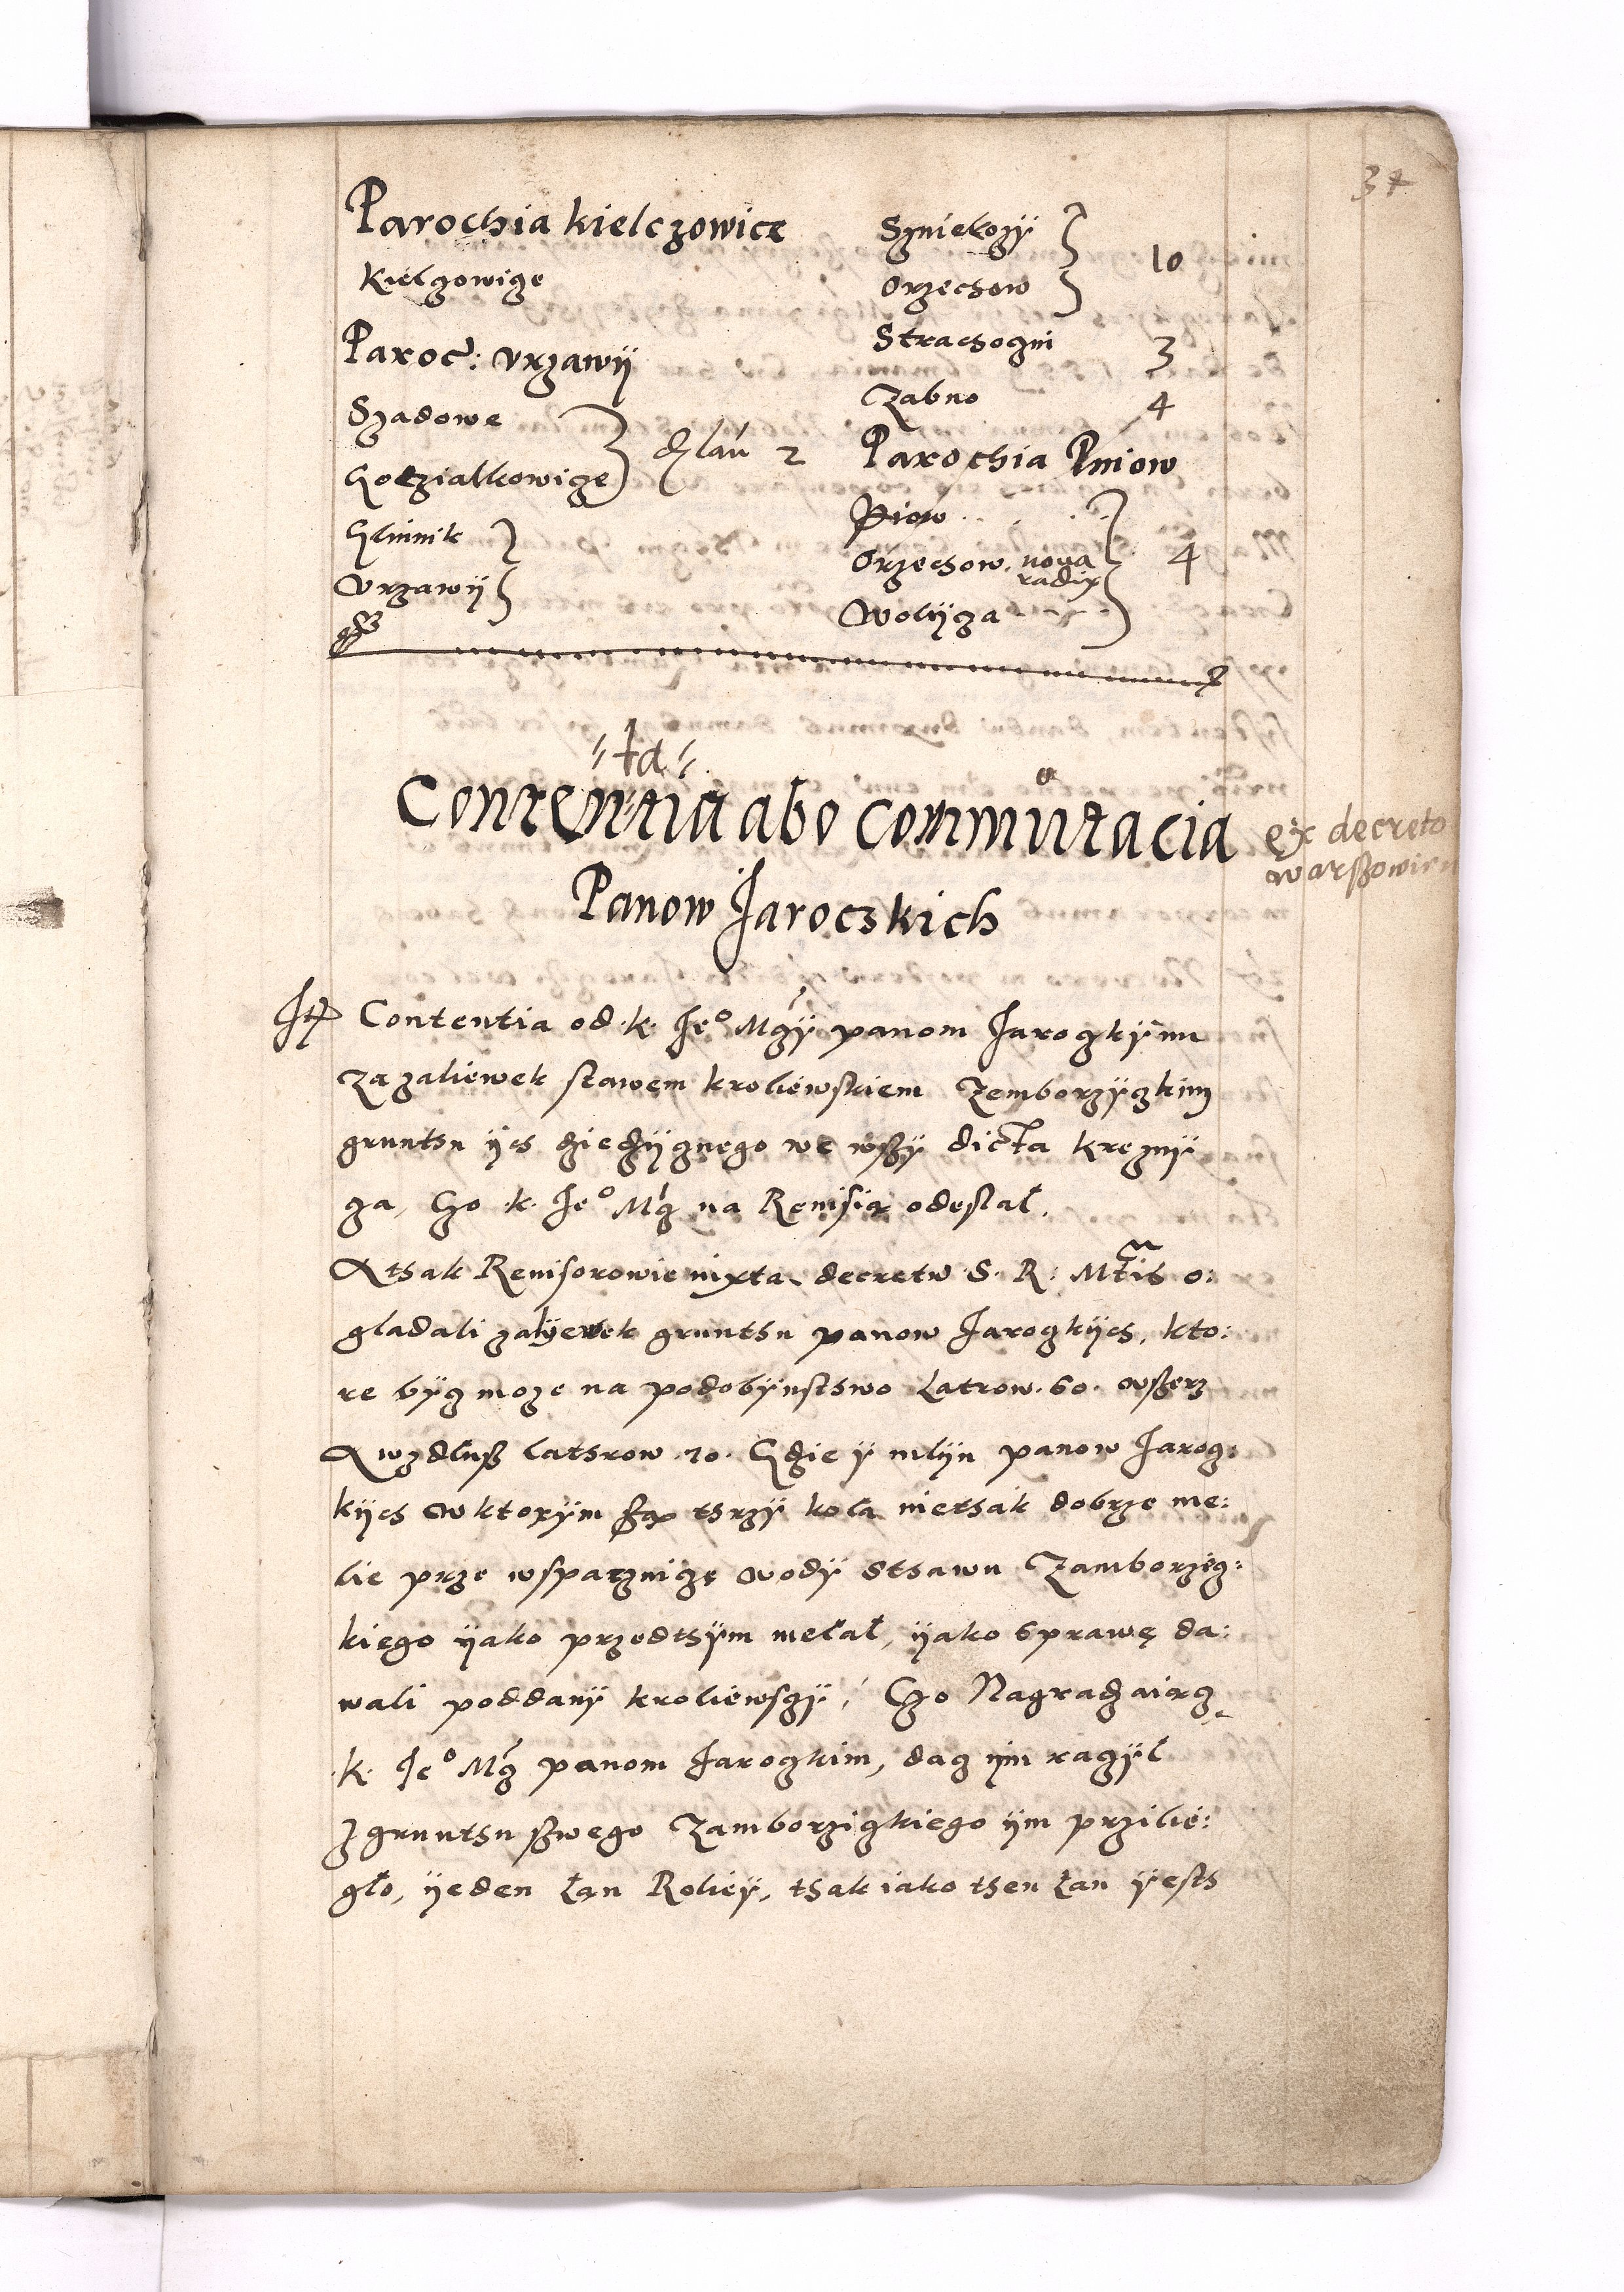 37
Parochia kielczowice
Kielczowicze
Paroc: vrzawÿ
Szadowe
Gosczialkowicze
dzlau 2
Glinnik
vrzawÿ
Sznielozÿ
Orzechow
10
Strachoczin
3
Zabno
4
Parochia Pniow
Piow
Orzechow. noua
radix
4
Wolÿcza
ta
Contentia abo commutacia
Panow Jaroczkich
ex decreto
warszowien
Contentia od k. Jeo Mczÿ panom Jaroczkÿm
za zaliewek stawem kroliewskiem Zemborzÿczkim
grunthu ÿch dziedzÿcznego we wszÿ dicta kreznÿ
cza, Czo k. Jeo Mcz na Reuisią odesłał.
A thak Reuisorowie iuxta decretu S. R. Mtis o:
gladali zalÿewek grunthu panow Jaroczkÿch, kto:
re bÿcz moze na podobÿnsthwo Łatrow. 60. wszerz
A wzdlusz lathrow 20. Gdzie ÿ mlÿn panow Jarocz:
kÿch w ktorÿm są thrzÿ kola niethak dobrze me:
lie prze wsparcznicze wodÿ Sthawu Zamborzÿcz:
kiego ÿako przedthÿm mełał, ÿako sprawę da:
wali poddanÿ kroliewsczÿ, Czo Nagradzaiącz
k. Jeo Mcz panom Jaroczkim, dacz ÿm raczÿl
z grunthu szwego Zamborziczkiego ÿm przilie:
gło, ÿeden Łan Roliéÿ, thak iako then Łan ÿesth